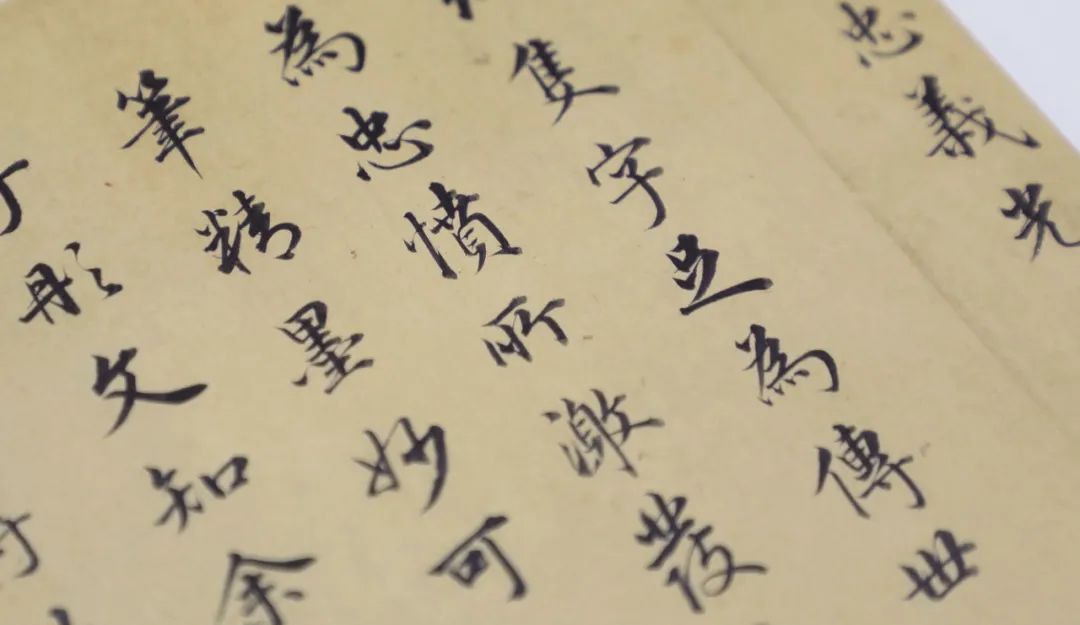 忠義光
隻字立為傳世
為忠憤所激發
筆精墨妙可
彤文知余